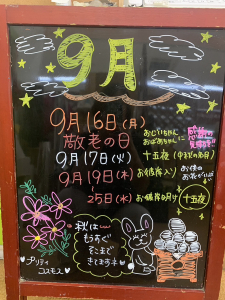 9月
9月16日(月)
敬老の日
おじいちゃん
おばあちゃんに
感謝の
気持ちを!!
9月17日(火)
十五夜(中秋の名月)
9月19日(木)
お彼岸入り
25日(水)
お彼岸明け
十五夜
秋は…
もうすぐ
そこまで
きてますネ
プリティ
コスモス